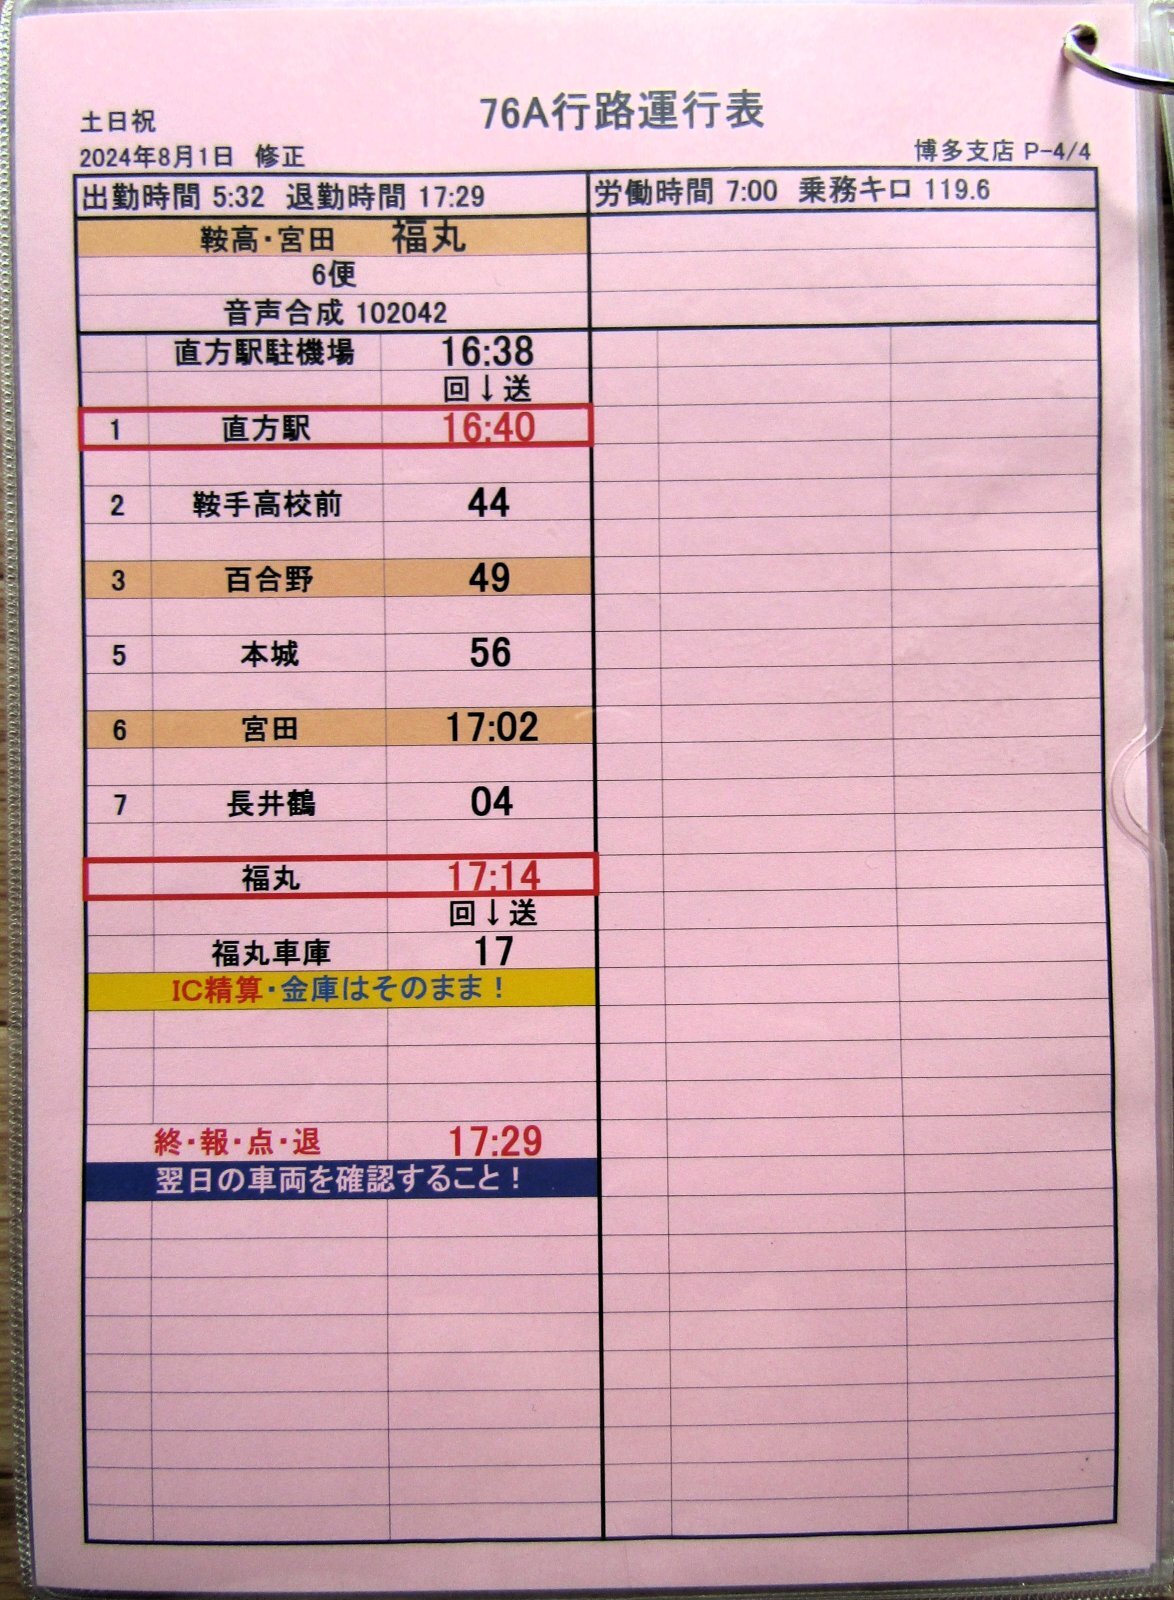 76A行路運行表
土日祝
2024年8月1日 修正
博多支店 P-4/4
出勤時間 5:32 退勤時間 17:29 労働時間 7:00 乗務キロ 119.6
鞍高・宮田 福丸
6便
音声合成 102042
直方駅駐機場 16:38
回↓送
1 直方駅 16:40
2 鞍手高校前 44
3 百合野 49
5 本城 56
6 宮田 17:02
7 長井鶴 04
福丸 17:14
回↓送
福丸車庫 17
IC精算・金庫はそのまま！
終・報・点・退 17:29
翌日の車両を確認すること！